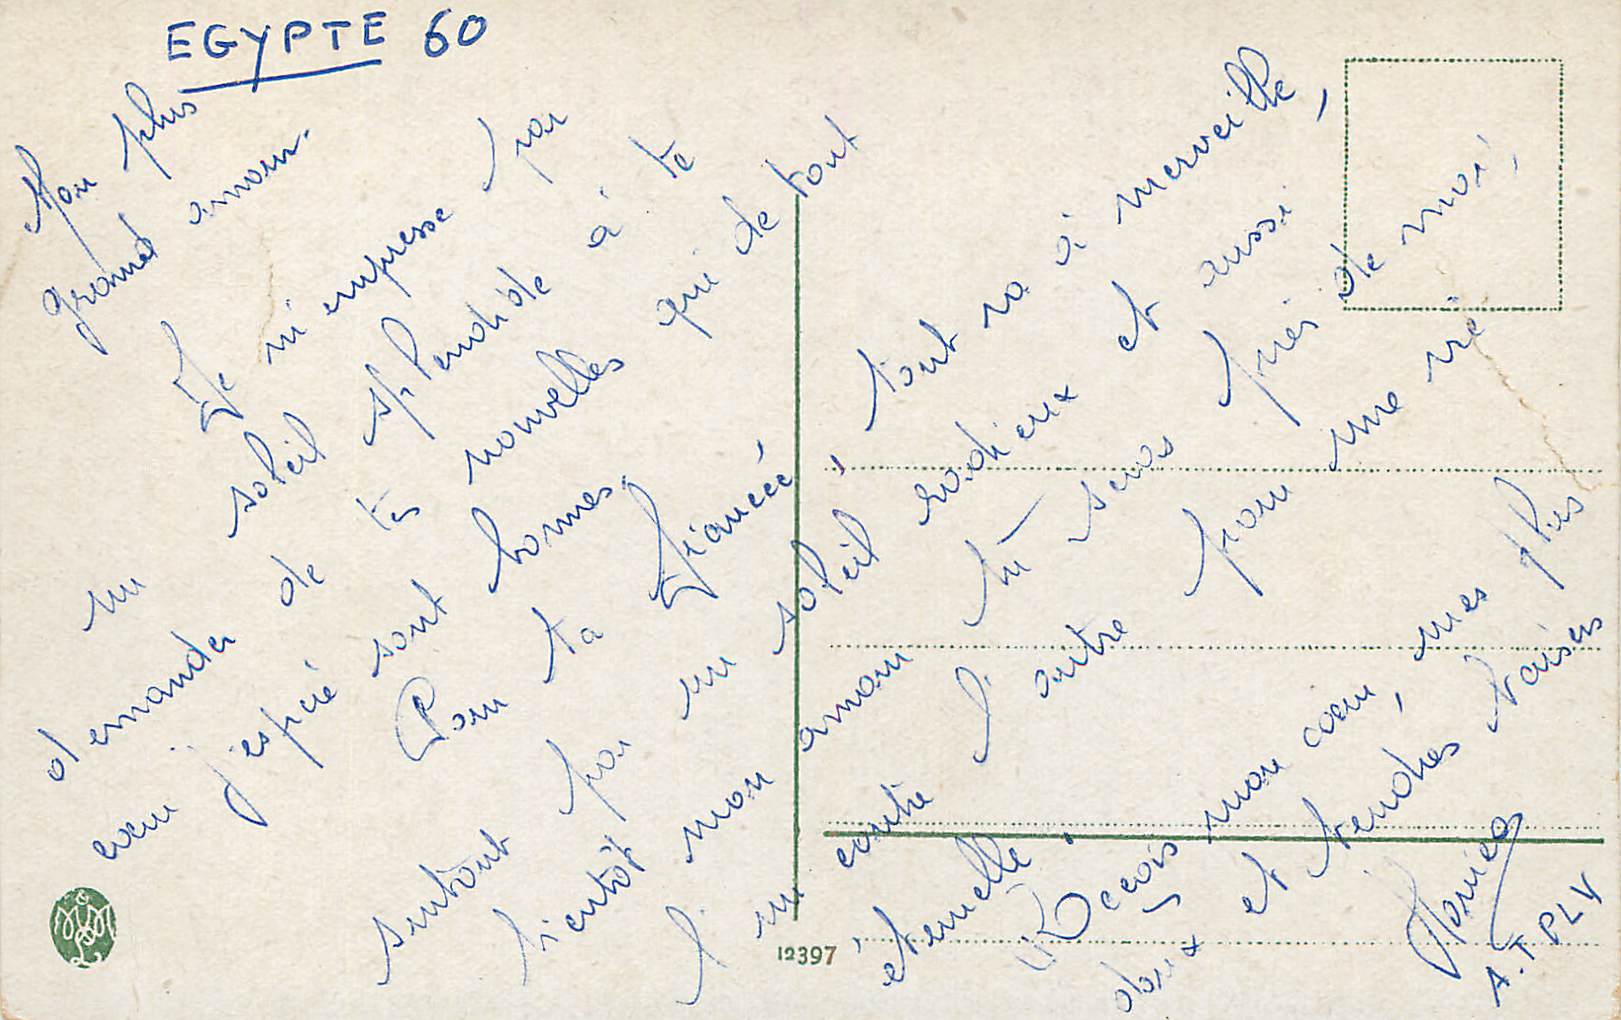 EGYPTE 60
Mon plus
grand amour.
Je m'empresse par
un soleil splendide à te
demander de tes nouvelles qui de tout
coeur j'espère sont bonnes.
Pour ta fiancée, tout va à merveille,
surtout par un soleil radieux et aussi
bientôt mon amour tu seras près de moi,
l'un contre l'autre pour une vie
éternelle.
Reçois mon coeur, mes plus
doux et tendres baisers
A.T PLV
12397